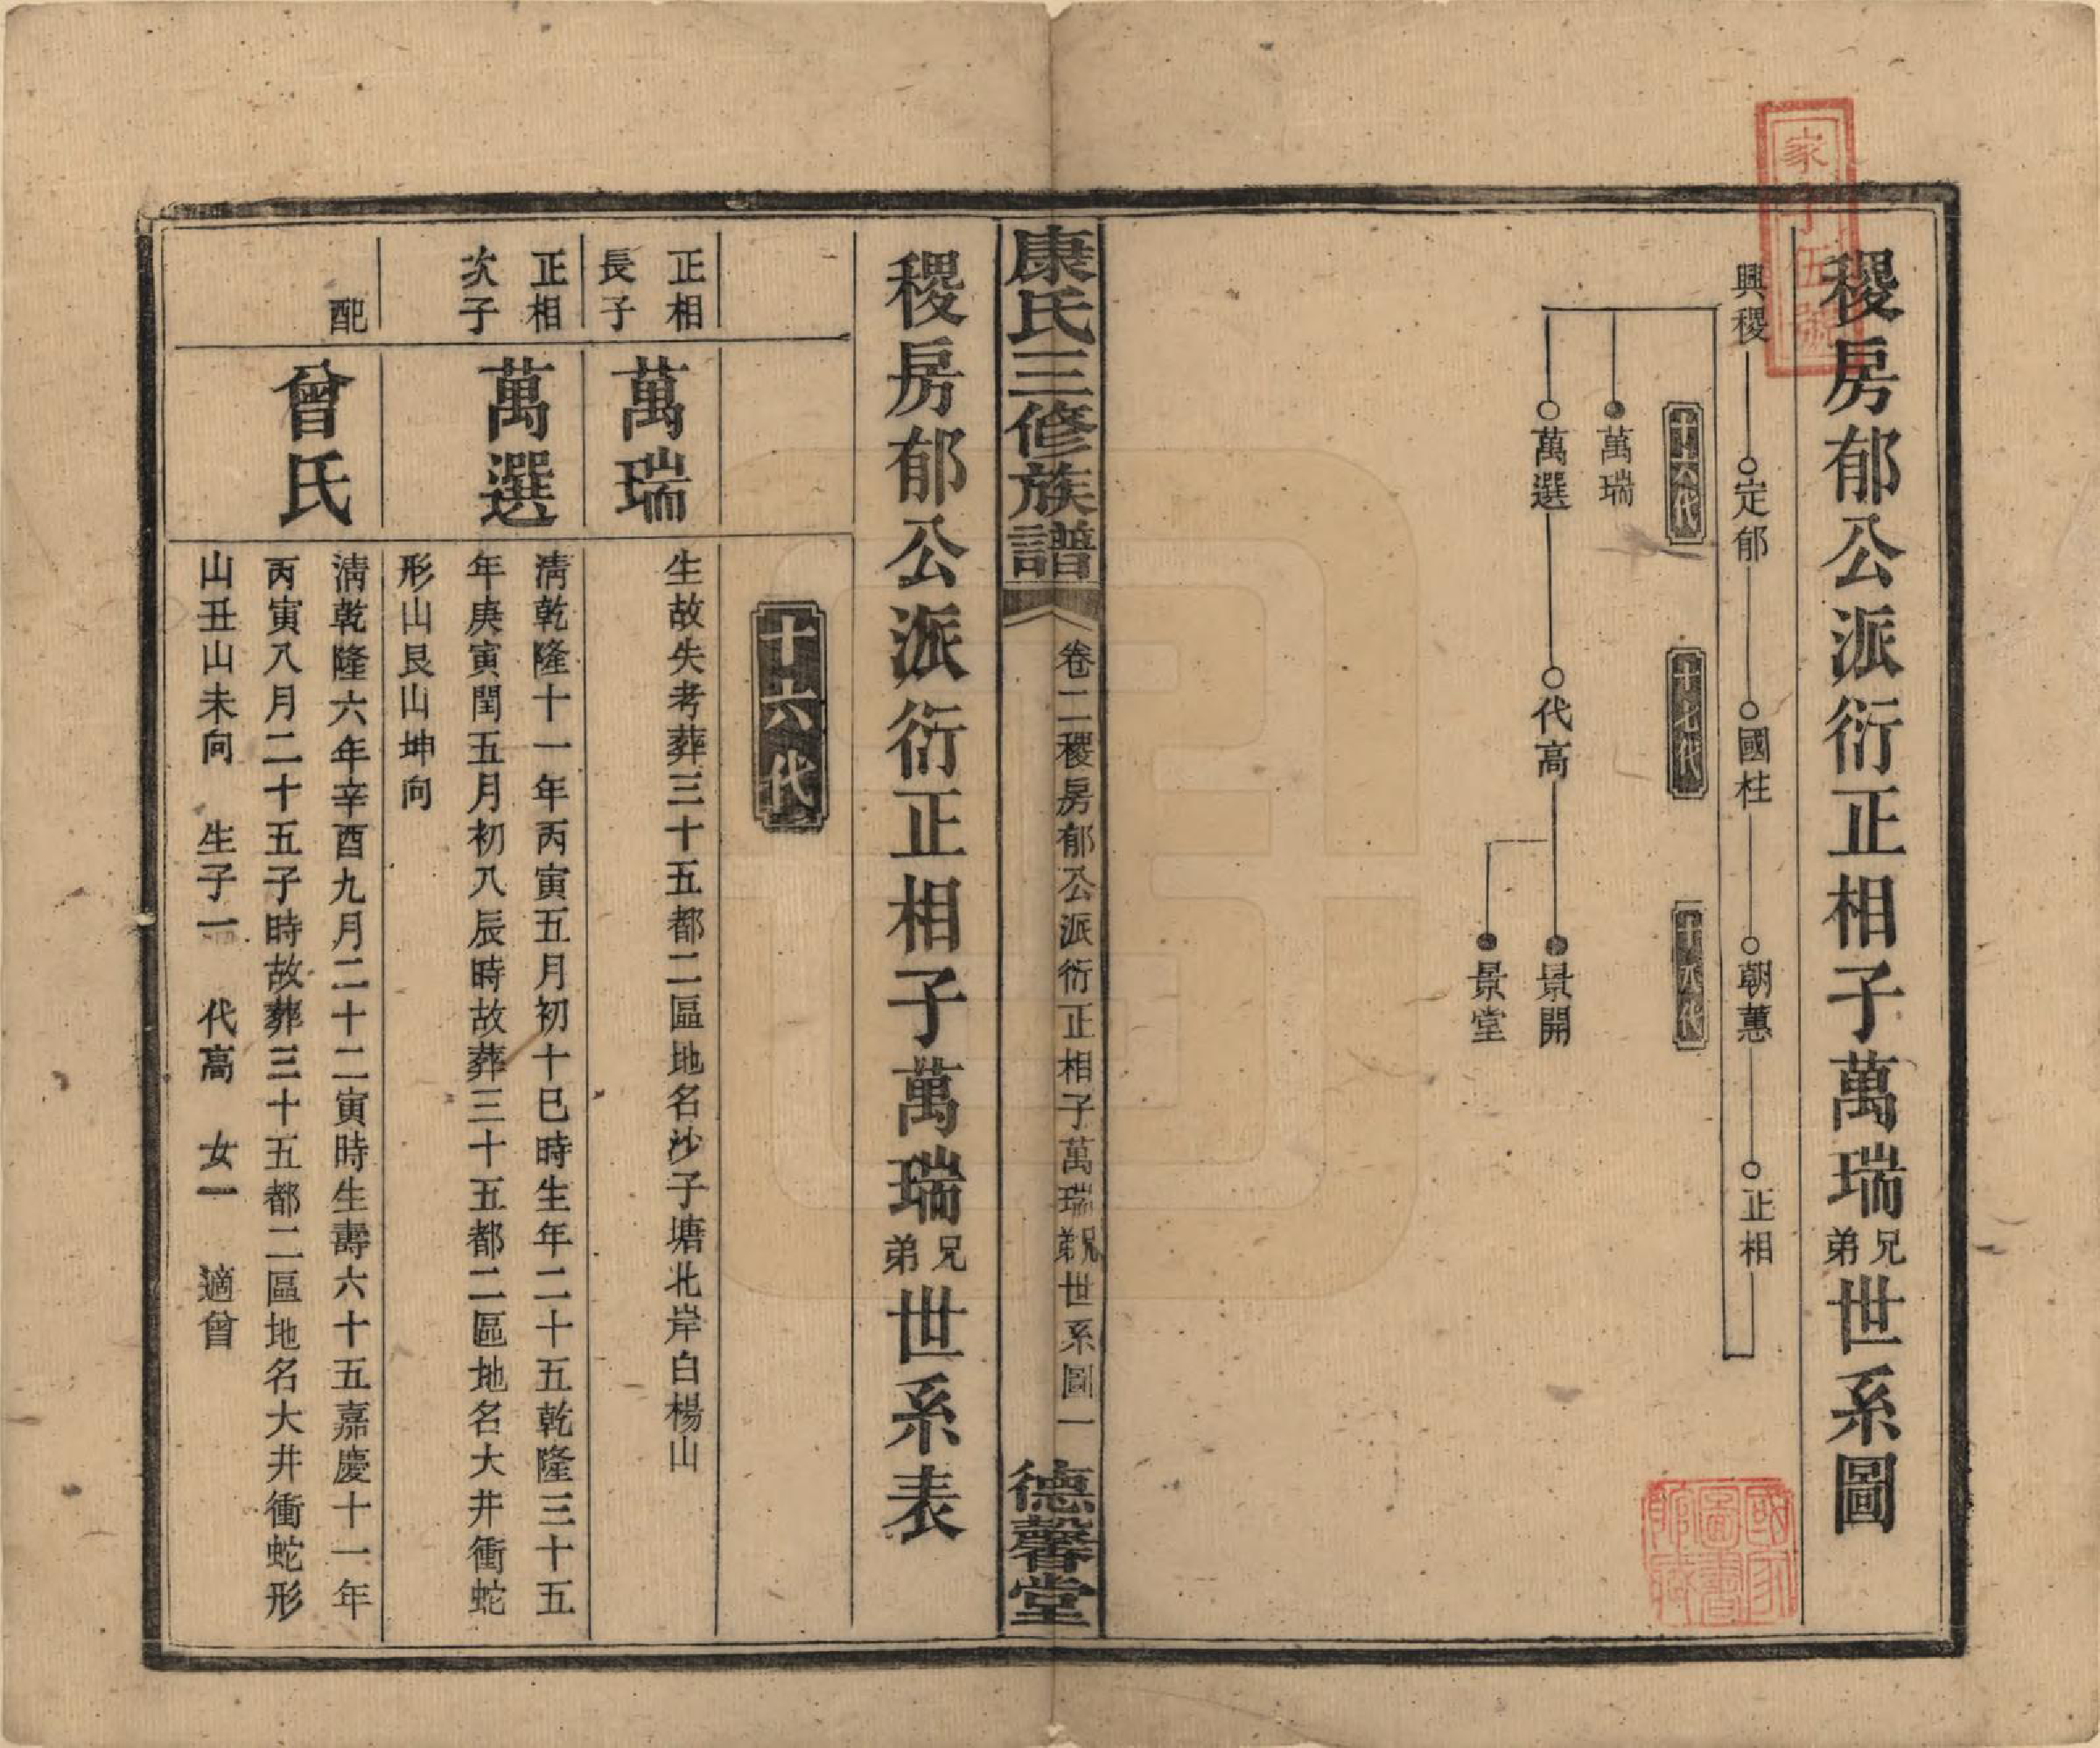 稷房郁公派衍正相子萬瑞兄弟世系圖
興稷
定郁
國柱
朝蕙
正相
十六代
十七代
十八代
萬瑞
萬選
代高
景開
景堂
康氏三修族譜
卷二稷房郁公派衍正相子萬瑞兄弟世系圖一
德馨堂
稷房郁公派衍正相子萬瑞兄弟世系表
十六代
正相
長子
萬瑞
生故失考葬三十五都二區地名沙子塘北岸白楊山
正相
次子
萬選
清乾隆十一年丙寅五月初十巳時生年二十五乾隆三十五
年庚寅閏五月初八辰時故葬三十五都二區地名大井衝蛇
形山艮山坤向
配
曾氏
清乾隆六年辛酉九月二十二寅時生壽六十五嘉慶十一年
丙寅八月二十五子時故葬三十五都二區地名大井衝蛇形
山丑山未向 生子一 代高 女一 適曾
國家
圖書
館藏